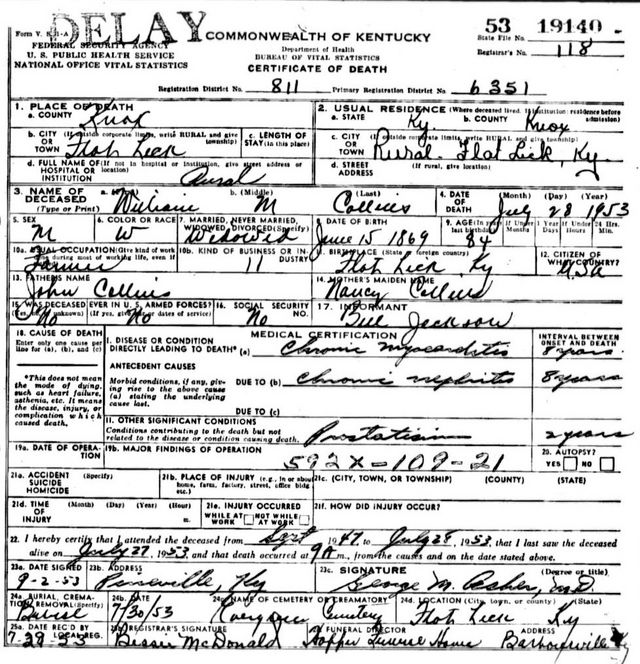 DELAY
Form V. S. 1-A
FEDERAL SECURITY AGENCY
U. S. PUBLIC HEALTH SERVICE
NATIONAL OFFICE VITAL STATISTICS
COMMONWEALTH OF KENTUCKY
Department of Health
BUREAU OF VITAL STATISTICS
CERTIFICATE OF DEATH
53 19140
State File No.
Registrar's No. 118
Registration District No. 811 Primary Registration District No. 6351
1. PLACE OF DEATH
a. COUNTY Knox
2. USUAL RESIDENCE (Where deceased lived. If institution: residence before admission).
a. STATE Ky. b. COUNTY Knox
b. CITY (If outside corporate limits, write RURAL and give township) OR TOWN Flat Lick
c. LENGTH OF STAY (in this place)
c. CITY (If outside corporate limits, write RURAL and give township) OR TOWN Rural - Flat Lick, Ky.
d. FULL NAME OF (If not in hospital or institution, give street address or location) HOSPITAL OR INSTITUTION Rural
d. STREET ADDRESS (If rural, give location)
3. NAME OF DECEASED (Type or Print) a. (First) William b. (Middle) M c. (Last) Collins
4. DATE OF DEATH (Month) (Day) (Year) July 28 1953
5. SEX M
6. COLOR OR RACE W
7. MARRIED, NEVER MARRIED, WIDOWED, DIVORCED (Specify) Widowed
8. DATE OF BIRTH June 15 1869
9. AGE (In years last birthday) 84
10a. USUAL OCCUPATION (Give kind of work done during most of working life, even if Farmer
10b. KIND OF BUSINESS OR INDUSTRY 11
11. BIRTHPLACE (State or foreign country) Flat Lick Ky
12. CITIZEN OF WHAT COUNTRY? USA
13. FATHER'S NAME John Collins
14. MOTHER'S MAIDEN NAME Nancy Collins
15. WAS DECEASED EVER IN U. S. ARMED FORCES? (If yes, give war or dates of service) No No
16. SOCIAL SECURITY NO. No
17. INFORMANT Bill Jackson
18. CAUSE OF DEATH
Enter only one cause per line for (a), (b), and (c)
MEDICAL CERTIFICATION
INTERVAL BETWEEN ONSET AND DEATH
I. DISEASE OR CONDITION DIRECTLY LEADING TO DEATH* (a) Chronic myocarditis 8 years
*This does not mean the mode of dying, such as heart failure, asthenia, etc. It means the disease, injury, or complication which caused death.
ANTECEDENT CAUSES
Morbid conditions, if any, giving rise to the above cause (a) stating the underlying cause last.
DUE TO (b) Chronic nephritis 8 years
DUE TO (c)
II. OTHER SIGNIFICANT CONDITIONS
Conditions contributing to the death but not related to the disease or condition causing death. Prostatism 2 years
19a. DATE OF OPERATION
19b. MAJOR FINDINGS OF OPERATION
592X-109-21
20. AUTOPSY? YES NO
21a. ACCIDENT SUICIDE HOMICIDE (Specify)
21b. PLACE OF INJURY (e.g., in or about home, farm, factory, street, office bldg etc.)
21c. (CITY, TOWN, OR TOWNSHIP) (COUNTY) (STATE)
21d. TIME OF INJURY (Month) (Day) (Year) (Hour)
21e. INJURY OCCURRED WHILE AT WORK NOT WHILE AT WORK
21f. HOW DID INJURY OCCUR?
22. I hereby certify that I attended the deceased from Sept 1947 to July 28, 1953, that I last saw the deceased
alive on July 27, 1953 and that death occurred at 9 A m., from the causes and on the date stated above.
23a. DATE SIGNED 9-2-53
23b. ADDRESS Pineville, Ky
23c. SIGNATURE (Degree or title) George M. Asher, M.D.
24a. BURIAL, CREMATION, REMOVAL (Specify) Burial
24b. DATE 7/30/53
24c. NAME OF CEMETERY OR CREMATORY Cemetery
24d. LOCATION (City, town, or county) (State) Flat Lick Ky
25a. DATE REC'D BY LOCAL REG. 7-29-53
25b. REGISTRAR'S SIGNATURE Bessie McDonald
26. FUNERAL DIRECTOR Hopper Funeral Home
ADDRESS Barbourville Ky